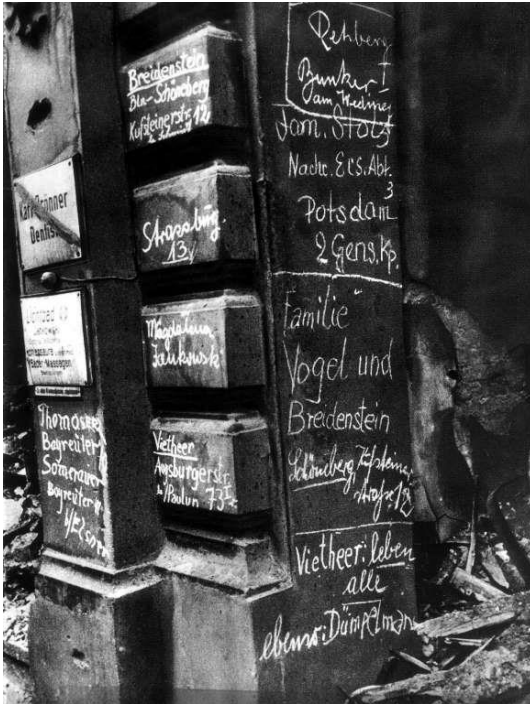 Karl Brönner
Dentist
Lichtbad
Bäder-Massagen
Thomasser
Bayreuter
Somerauer
Bayreuter
Breidenstein
Bln-Schöneberg
Kufsteinerstr. 12
Strassburg.
13
Magdalena
Jankowsk
Vietheer
Augsburgerstr.
b/Paulun 73 I
Rehberg
Bunker I
am
Fam. Stolz
Nachr. Ers. Abt.
3
Potsdam
2 Gens. Kp.
Familie
Vogel und
Breidenstein
Schöneberg, Kufsteiner
strasse 12
Vietheer: leben
alle
ebenso: Dümpelman